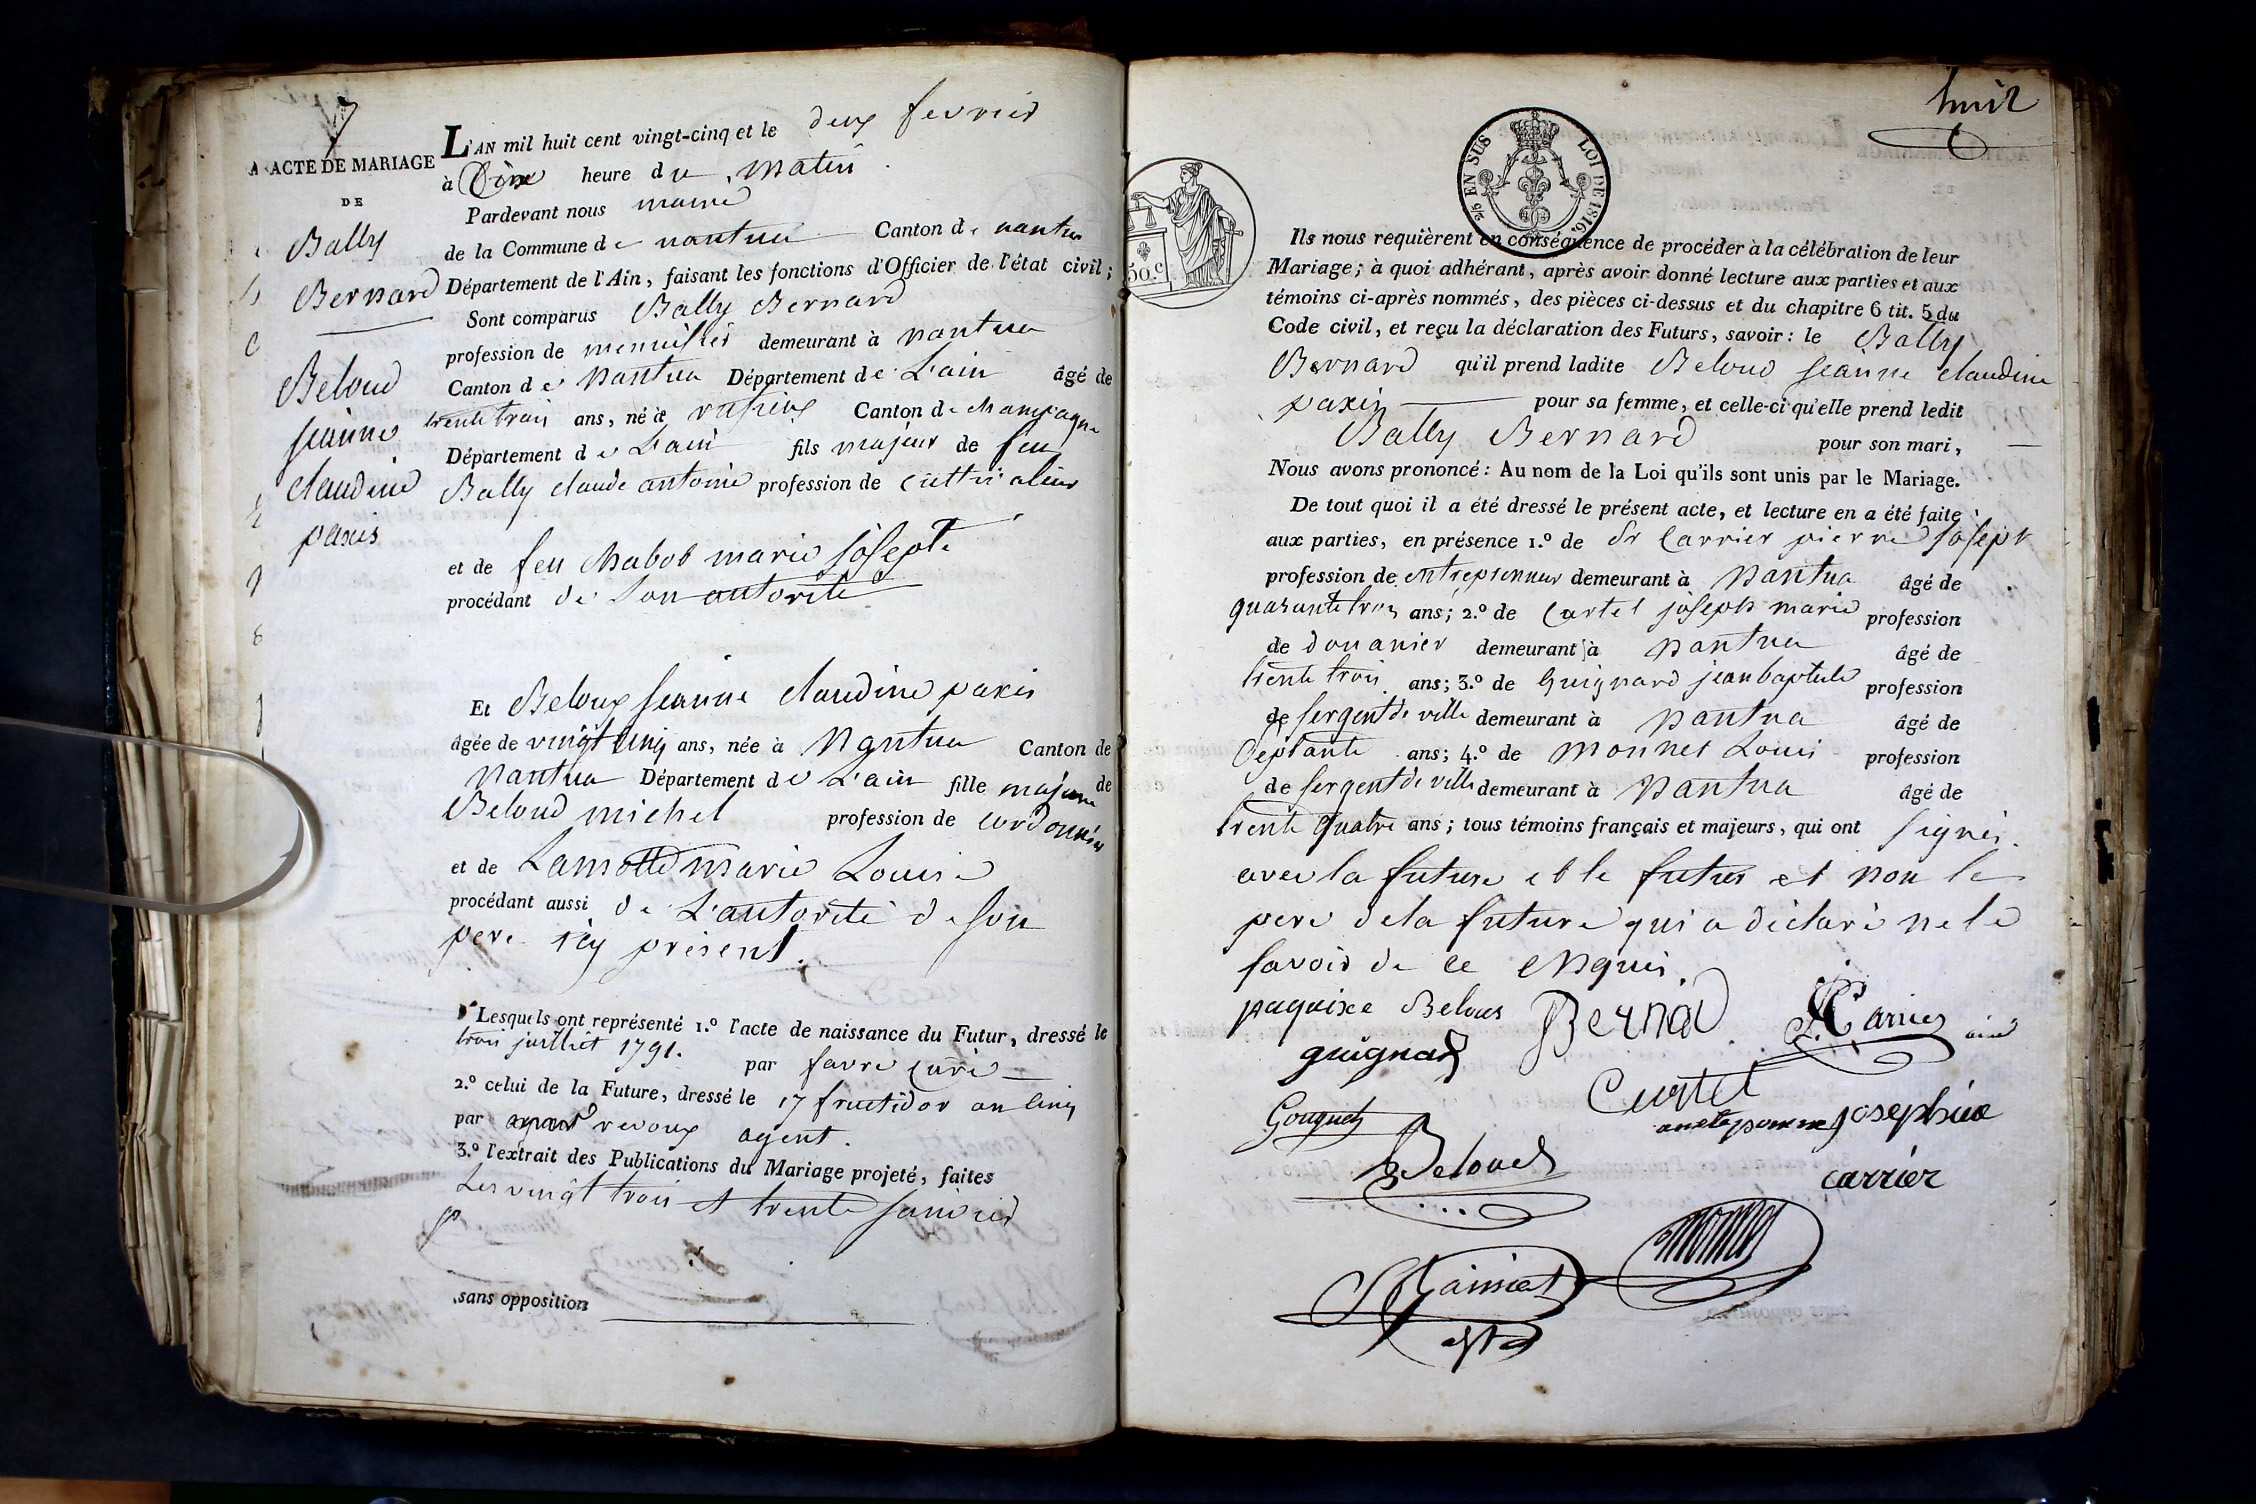 7
ACTE DE MARIAGE
DE
Bally
Bernard
Beloud
jeanne
claudine
paxis
L'AN mil huit cent vingt-cinq et le deux fevrier
à Dix heure du matin
Pardevant nous maire
de la Commune de nantua Canton de nantua
Département de l'Ain, faisant les fonctions d'Officier de l'état civil;
Sont comparus Bally Bernard
profession de menuisier demeurant à nantua
Canton de Nantua Département de L'ain âgé de
trente trois ans, né à Canton de champagne
Département de L'ain fils majeur de feu
Bally claude antoine profession de cultivateur
et de feu Chabod marie josepte
procédant de Son autorité
Et Beloux jeanne claudine paxis
âgée de vingt cinq ans, née à Nantua Canton de
Nantua Département de L'ain fille majeure de
Beloud michel profession de cordonnier
et de Lamotte marie Louise
procédant aussi de L'autorité de son
pere icy présent.
Lesquels ont représenté 1.º l'acte de naissance du Futur, dressé le
trois juillet 1791. par favre curé
2.º celui de la Future, dressé le 17 fructidor an cinq
par revoux agent.
3.º l'extrait des Publications du Mariage projeté, faites
Les vingt trois et trente janvier
sans opposition
huit
2/5 EN SUS LOI DE 1816.
50.c
Ils nous requièrent en conséquence de procéder à la célébration de leur
Mariage; à quoi adhérant, après avoir donné lecture aux parties et aux
témoins ci-après nommés, des pièces ci-dessus et du chapitre 6 tit. 5 du
Code civil, et reçu la déclaration des Futurs, savoir: le Bally
Bernard qu'il prend ladite Beloud jeanne claudine
paxis pour sa femme, et celle-ci qu'elle prend ledit
Bally Bernard pour son mari,
Nous avons prononcé: Au nom de la Loi qu'ils sont unis par le Mariage.
De tout quoi il a été dressé le présent acte, et lecture en a été faite
aux parties, en présence 1.º de Sr Carrier pierre joseph
profession de entreprenneur demeurant à Nantua âgé de
quarante trois ans; 2.º de Curtet joseph marie profession
de douanier demeurant à Nantua âgé de
trente trois ans; 3.º de Guignard jean baptiste profession
de sergent de ville demeurant à Nantua âgé de
Septante ans; 4.º de monnet Louis profession
de sergent de ville demeurant à Nantua âgé de
trente quatre ans; tous témoins français et majeurs, qui ont signés
avec la future et le futur et non le
pere de la future qui a déclaré ne le
savoir de ce enquis.
paquixe Belous Bernard Carrier ainé
guignard
Curtet
Gouguet
josephine
Beloud
carrier
monnet